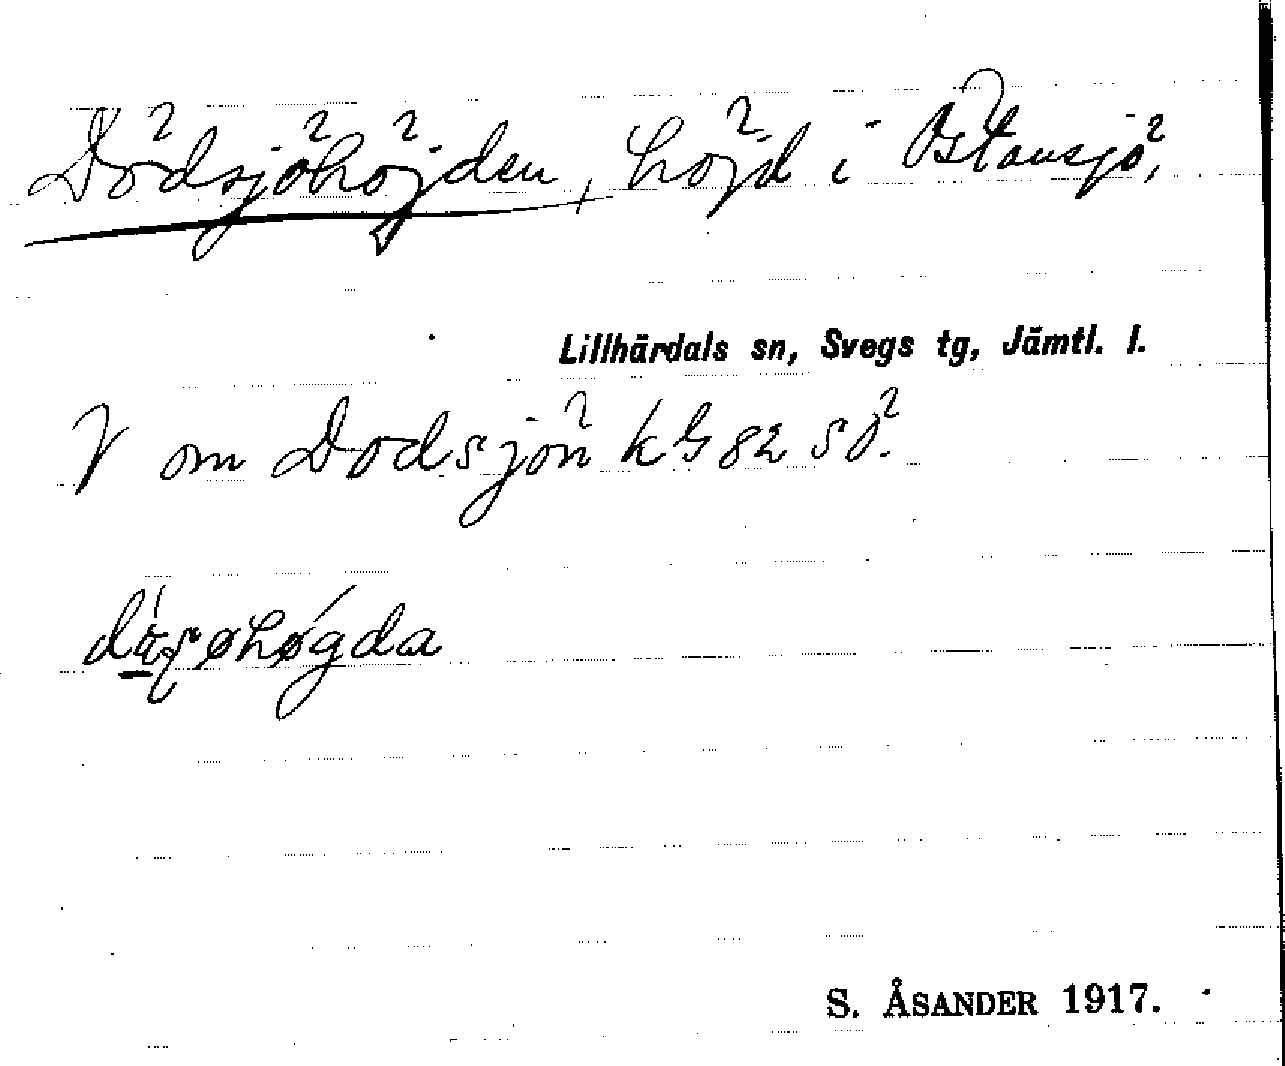 Dödsjöhöjden, höjd i Östansjö,
Lillhärdals sn, Svegs tg, Jämtl. l.
V om Dödsjön k G 82 SÖ.
S. ÅSANDER 1917.